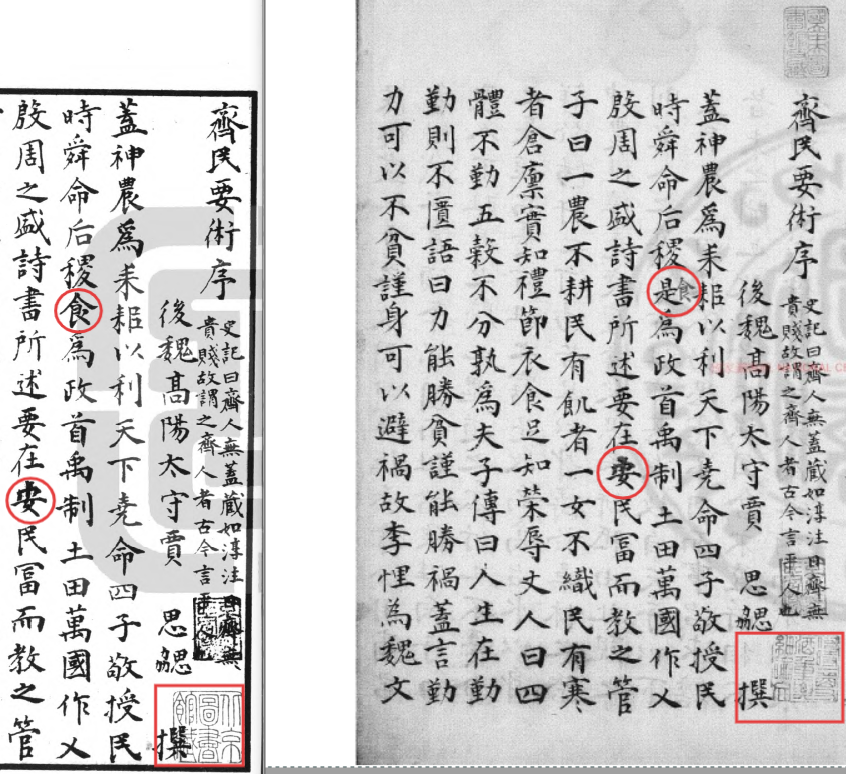 齊民要術序
史記曰齊人無蓋藏如淳注曰齊無
貴賤故謂之齊人者古今言平
後魏髙陽太守賈 思勰 撰
蓋神農爲耒耜以利天下堯命四子敬授民
時舜命后稷食爲政首禹制土田萬國作乂
殷周之盛詩書所述要在安民冨而教之管
齊民要術序
史記曰齊人無蓋藏如淳注曰齊無
貴賤故謂之齊人者古今言平人也
後魏髙陽太守賈 思勰 撰
蓋神農爲耒耜以利天下堯命四子敬授民
時舜命后稷是食爲政首禹制土田萬國作乂
殷周之盛詩書所述要在安民冨而教之管
子曰一農不耕民有飢者一女不織民有寒
者倉廩實知禮節衣食足知榮辱丈人曰四
體不勤五穀不分孰爲夫子傳曰人生在勤
勤則不匱語曰力能勝貧謹能勝禍蓋言勤
力可以不貧謹身可以避禍故李悝為魏文